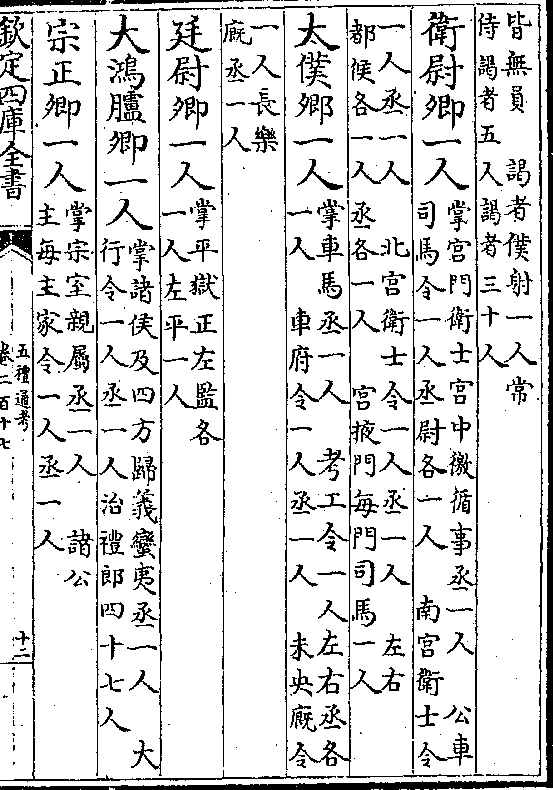 皆無員 謁者僕射一人常
侍謁者五人謁者三十人
衛尉卿一人
掌宮門衛士宮中徼循事丞一人 公車
司馬令一人丞尉各一人 南宮衛士令
一人丞一人 北宮衛士令一人丞一人 左右
都候各一人丞各一人 宮掖門每門司馬一人
太僕卿一人
掌車馬丞一人 考工令一人左右丞各
一人 車府令一人丞一人 未央廐令
一人長樂
廐丞一人
廷尉卿一人
掌平獄正左監各
一人左平一人
大鴻臚卿一人
掌諸侯及四方歸義蠻夷丞一人 大
行令一人丞一人治禮郎四十七人
宗正卿一人
掌宗室親屬丞一人 諸公
主每主家令一人丞一人
欽定四庫全書
五禮通考
卷二百十七
十二